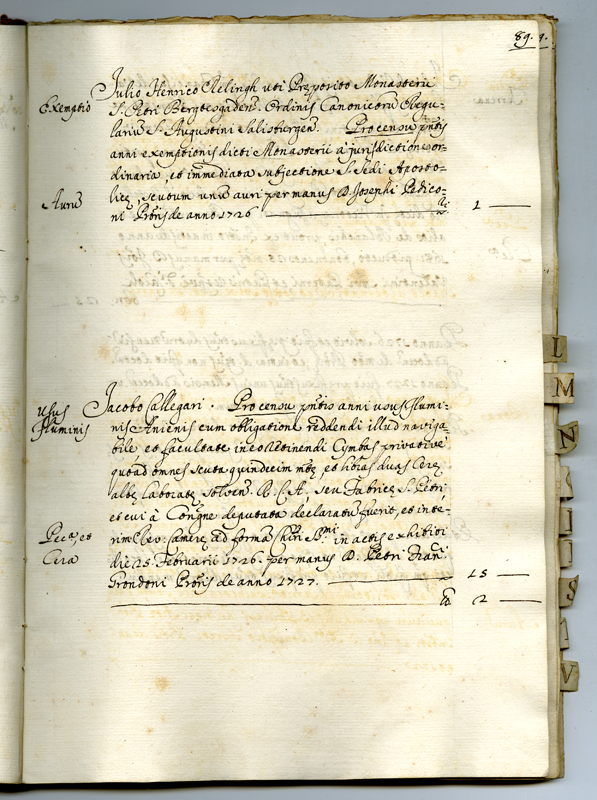 89. 9.
Julio Henrico Relingh uti Preposito Monasterii
Exemptio
S. Petri Bergtesgaden. Ordinis Canonicorũ Regu-
lariũ S. Augustini Salisburgen. Pro censu pñtis
anni exemptionis dicti Monasterii a jurisdictione or-
dinaria, et immediata subjectione S. Sedi Aposto-
licę, scutum unũ auri per manus D. Josephi Pedico-
Aurũ
1
ni Prõris de anno 1726
Usus
Fluminis
Jacobo Callegari. Pro censu pñtis anni usus Flumi-
nis Anienis cum obligatione reddendi illud naviga
bile et facultate in eo retinendi Cymbas privativè
quoad omnes scuta quindecim mtę, et libras duas Cerę
albę laboratę solven. R. C. A., seu Fabricę S. Petri
et cui à Congne deputata declaratũ fuerit, et inte-
rim Rev. Camerę ad formã Chiri Smi in actis exhibiti
Pecã, et
Cera
die 25. Februarii 1726. per manus D. Petri Franci
Grondoni Prõris de anno 1727.
15
2
L
M
N
S
V